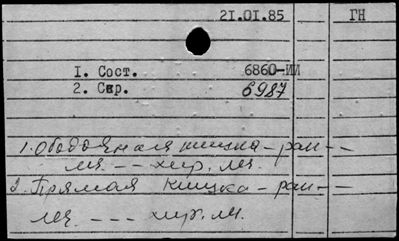 21.01.85 ГН
1. Сост. 6860-ИИ
2. Скр. 6987
1. Ободочная кишка – ран – –
мя. – – – хир. мя.
2. Прямая кишка – ран – –
мя. – – – хир. мя.